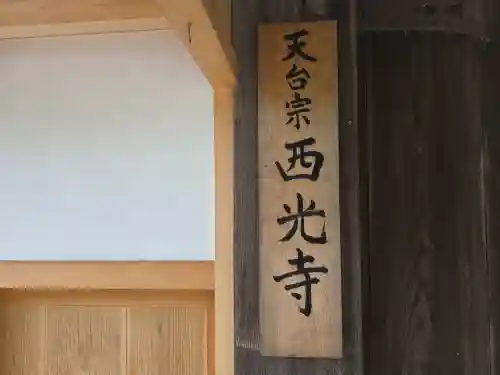 天台宗西光寺